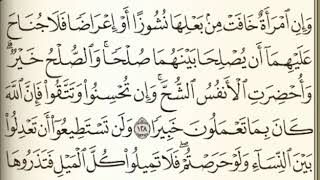 وَإِنِ ٱمْرَأَةٌ خَافَتْ مِنۢ بَعْلِهَا نُشُوزًا أَوْ إِعْرَاضًا فَلَا جُنَاحَ
عَلَيْهِمَآ أَن يُصْلِحَا بَيْنَهُمَا صُلْحًا ۚ وَٱلصُّلْحُ خَيْرٌ ۗ
وَأُحْضِرَتِ ٱلْأَنفُسُ ٱلشُّحَّ ۚ وَإِن تُحْسِنُوا۟ وَتَتَّقُوا۟ فَإِنَّ ٱللَّهَ
كَانَ بِمَا تَعْمَلُونَ خَبِيرًا ١٢٨ وَلَن تَسْتَطِيعُوٓا۟ أَن تَعْدِلُوا۟
بَيْنَ ٱلنِّسَآءِ وَلَوْ حَرَصْتُمْ ۖ فَلَا تَمِيلُوا۟ كُلَّ ٱلْمَيْلِ فَتَذَرُوهَا